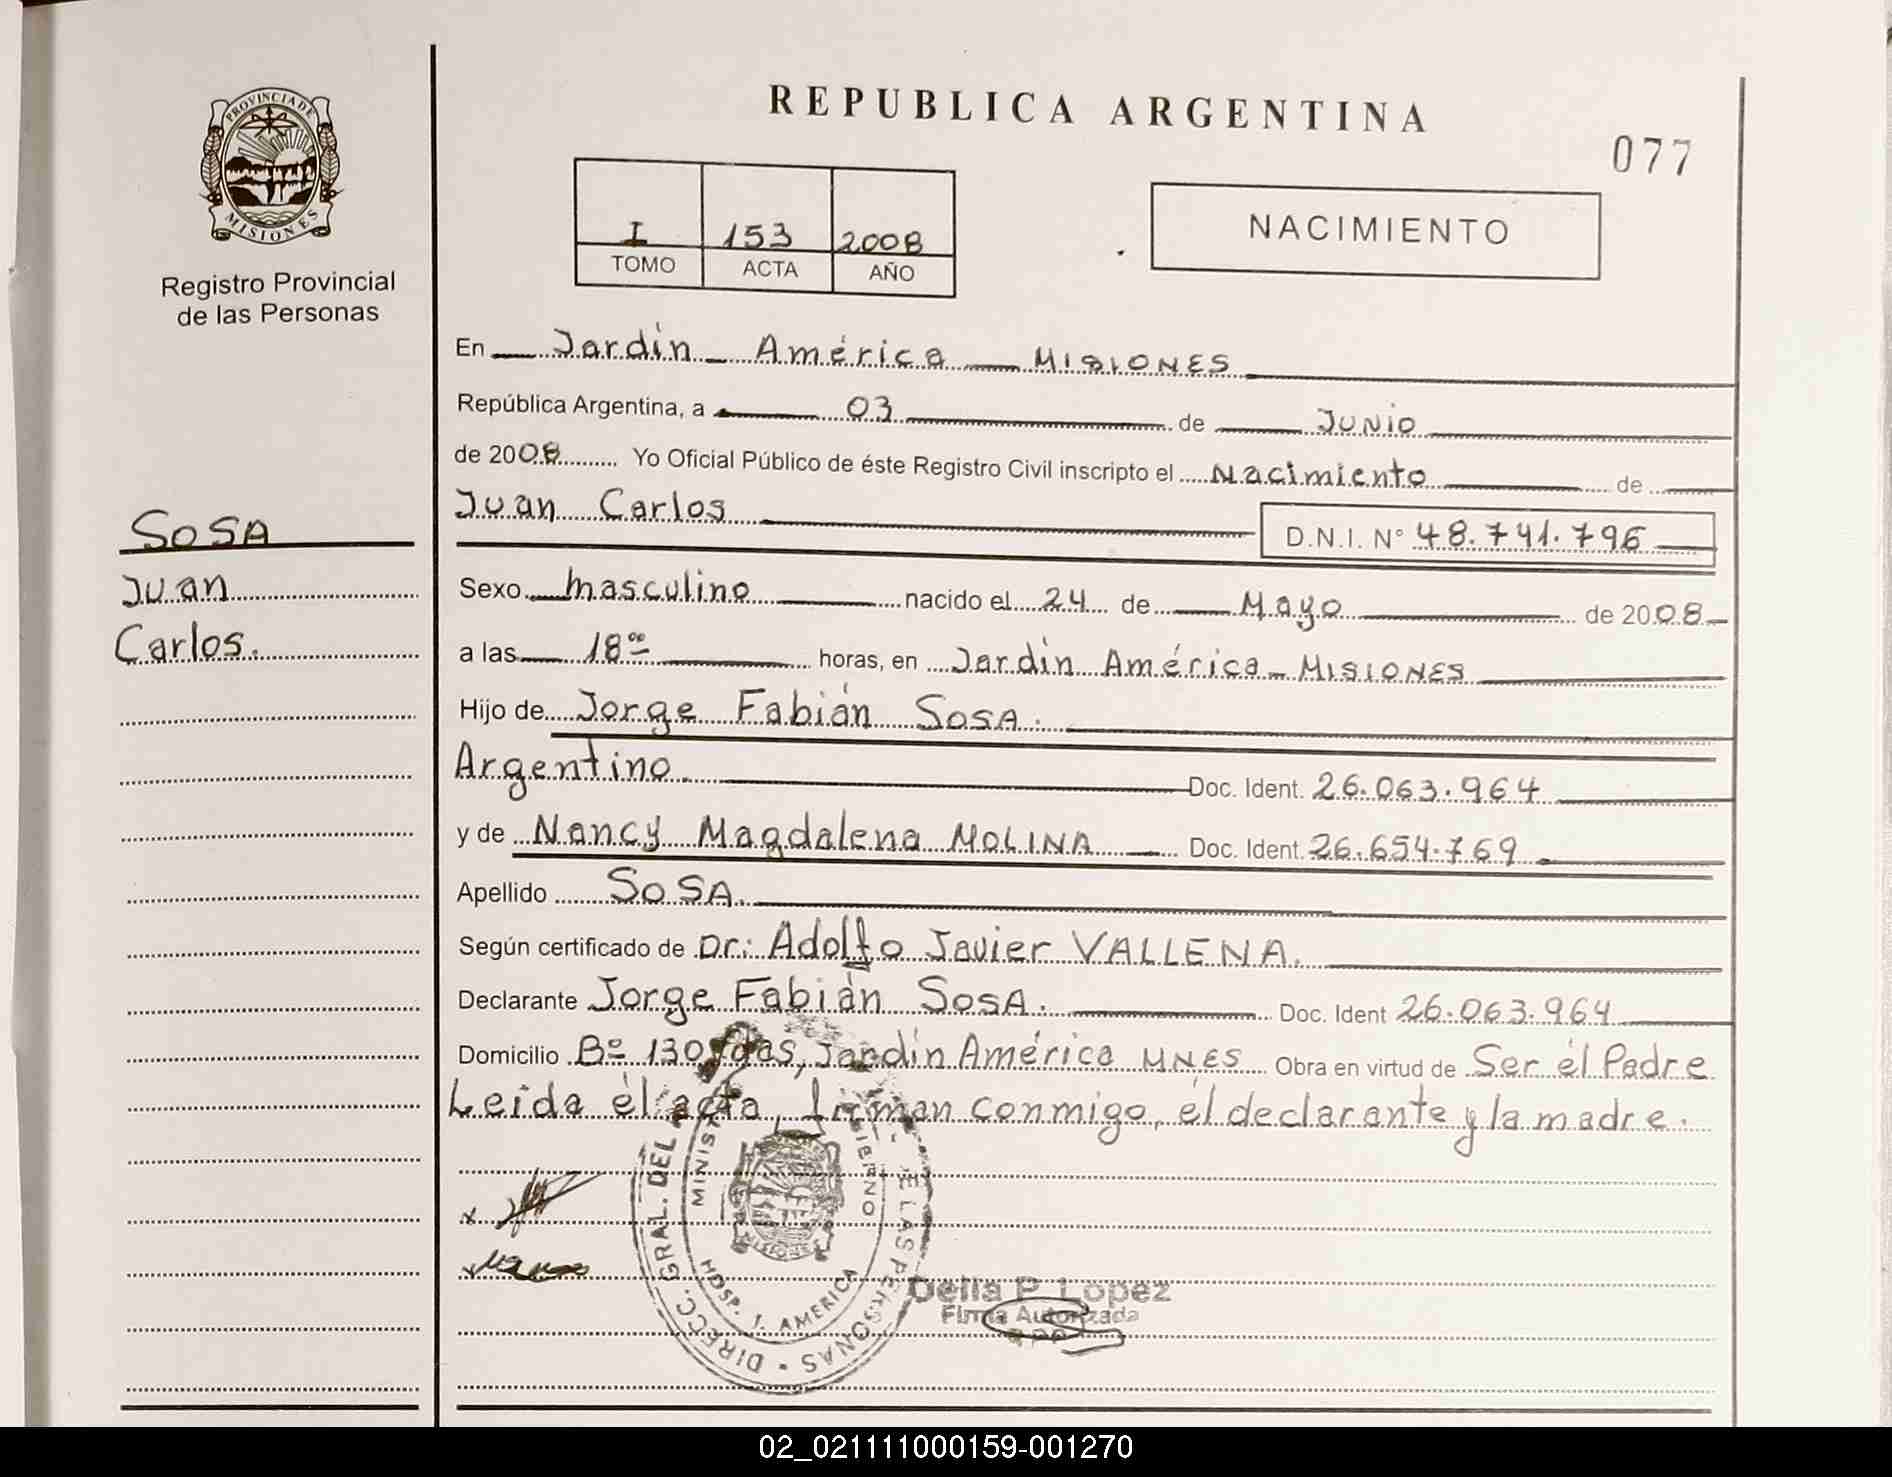 REPUBLICA ARGENTINA
077
PROVINCIA DE
MISIONES
Registro Provincial
de las Personas
I 153 2008
TOMO ACTA AÑO
NACIMIENTO
SOSA
Juan
Carlos.
En Jardín América MISIONES
República Argentina, a 03 de JUNIO
de 2008 Yo Oficial Público de éste Registro Civil inscripto el Nacimiento de
Juan Carlos D.N.I. N° 48.741.796
Sexo masculino nacido el 24 de Mayo de 2008
a las 18ºº horas, en Jardín América - MISIONES
Hijo de Jorge Fabián SOSA.
Argentino. Doc. Ident. 26.063.964
y de Nancy Magdalena MOLINA Doc. Ident. 26.654.769
Apellido SOSA.
Según certificado de Dr: Adolfo Javier VALLENA.
Declarante Jorge Fabián SOSA. Doc. Ident 26.063.964
Domicilio Bº 130 Vdas, Jardín América MNES Obra en virtud de Ser él Padre
Leida él acta, firman conmigo, él declarante y la madre.
DIRECC. GRAL. DEL LAS PERSONAS
HOSP. J. AMERICA
MISIONES
Delia P. Lopez
Firma Autorizada
02_021111000159-001270